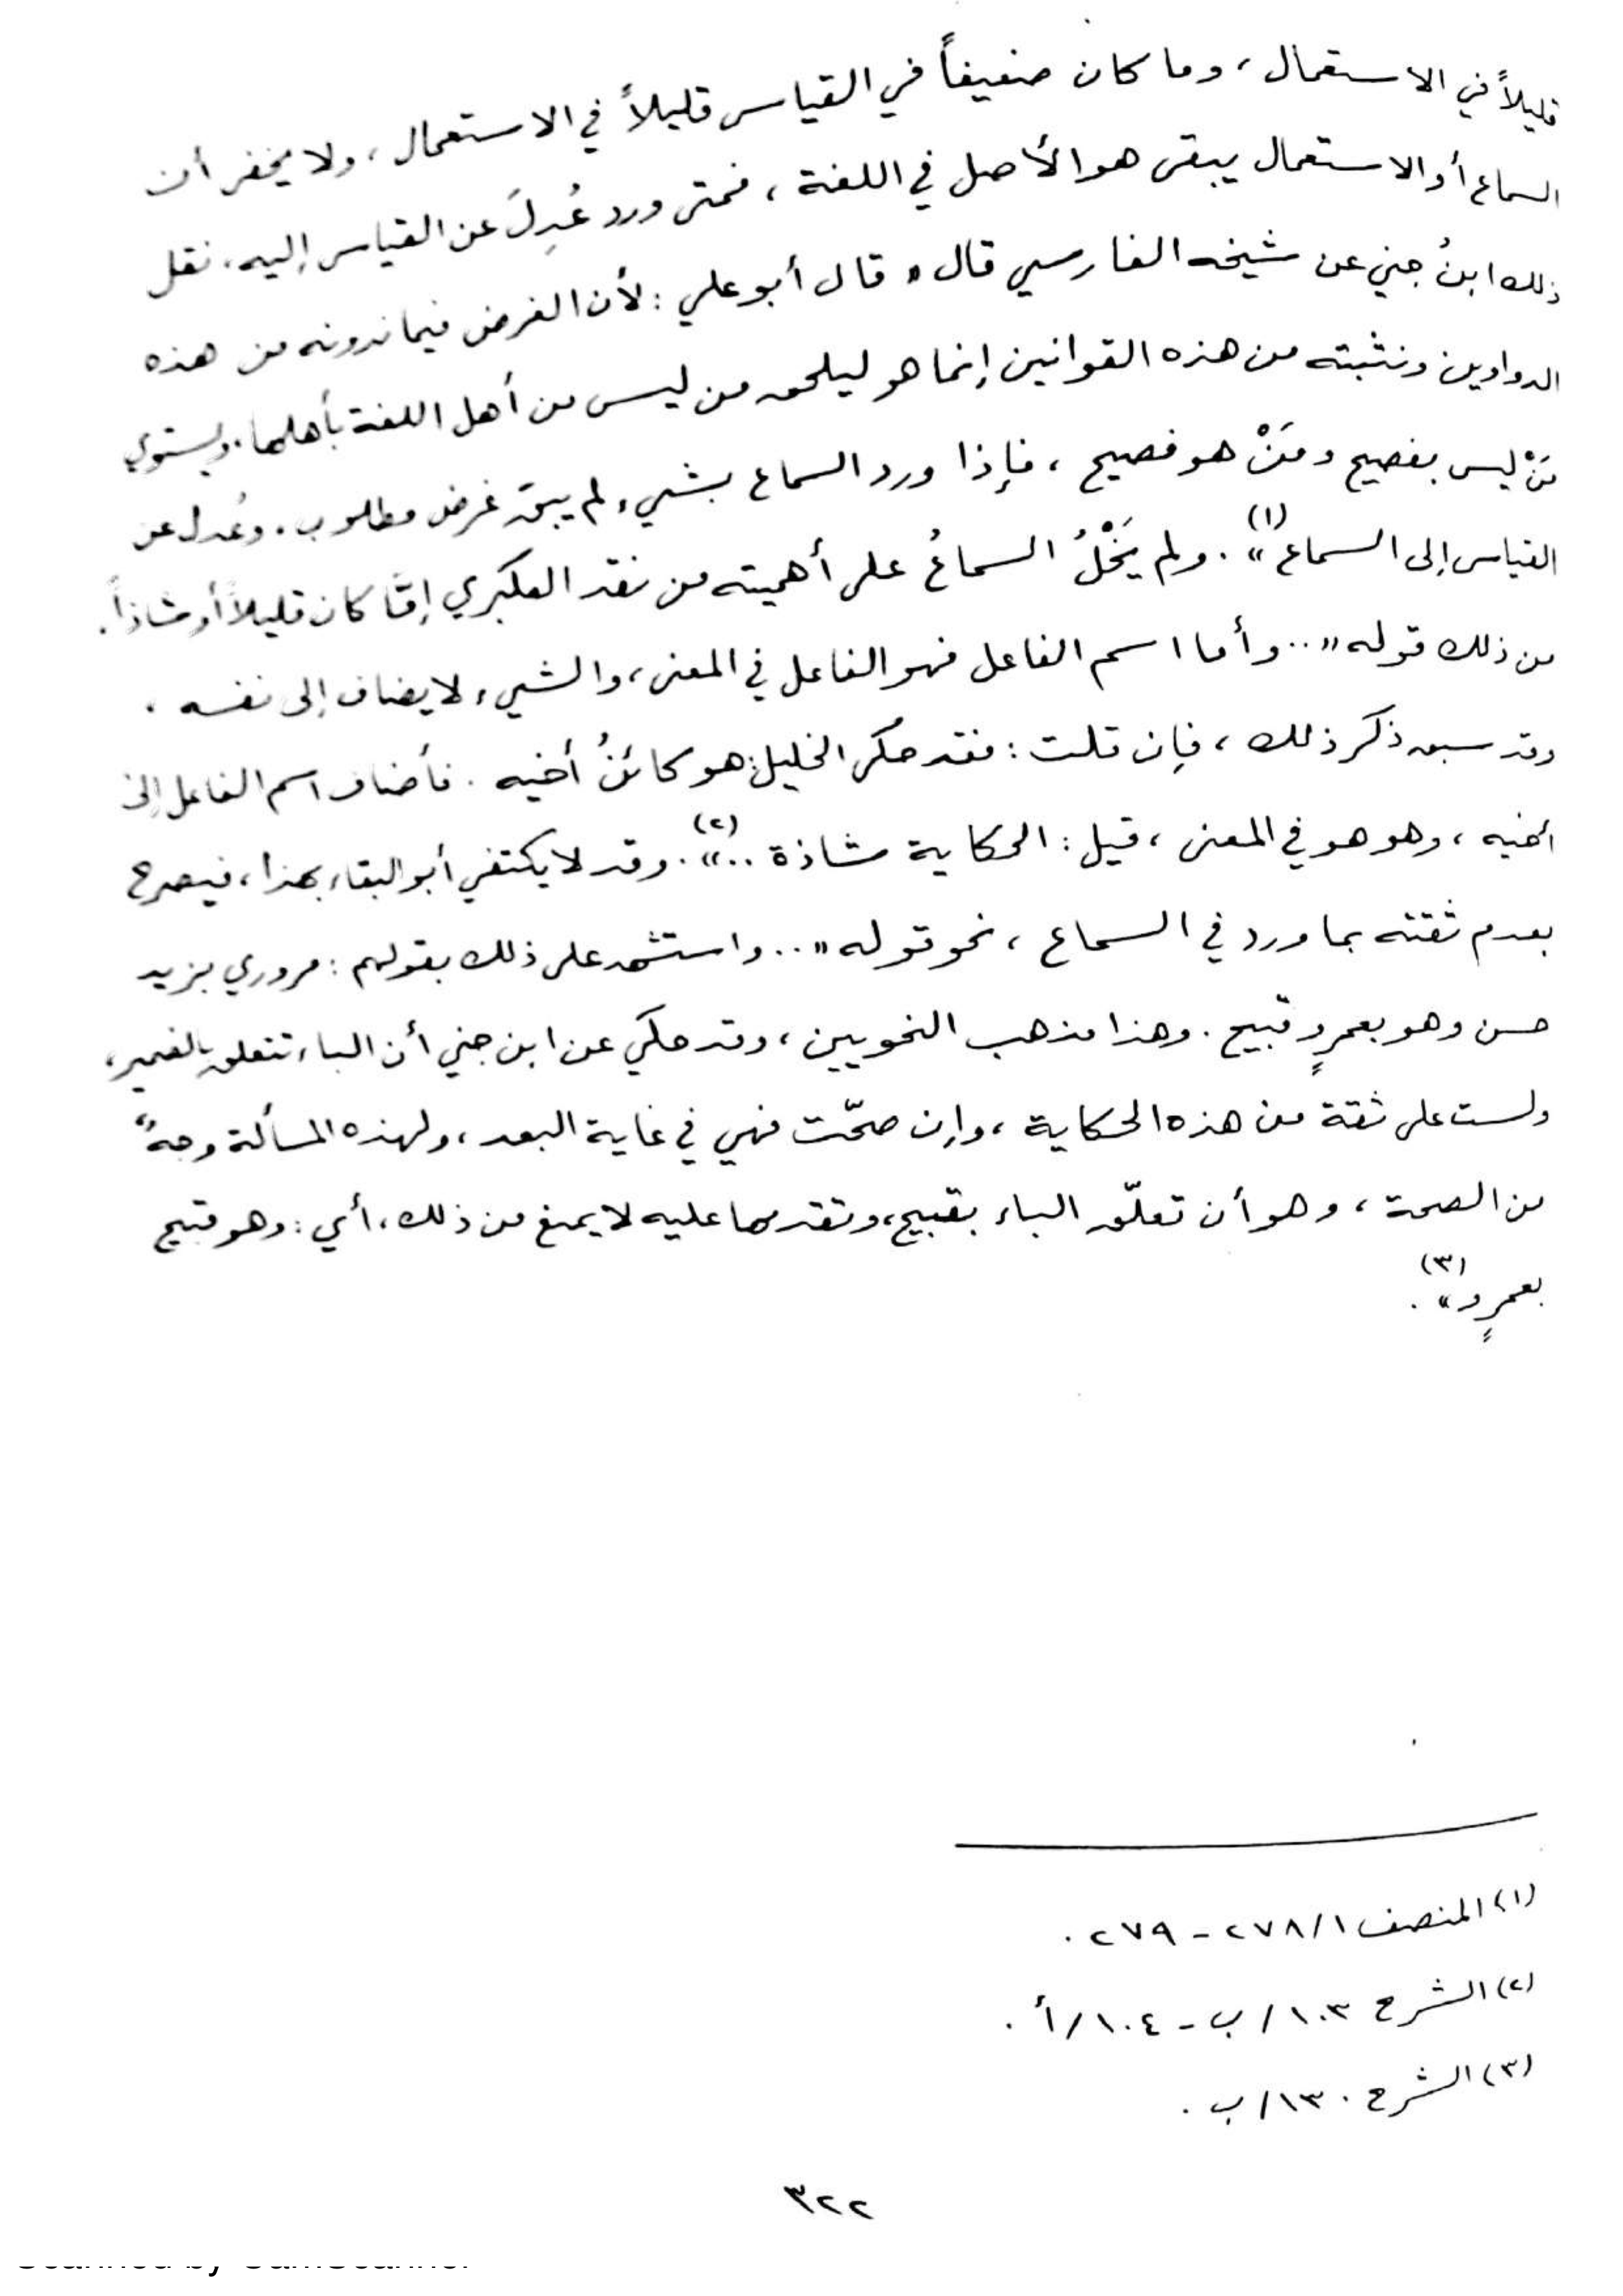 قليلاً في الاستعمال ، وما كان ضعيفاً في القياس قليلاً في الاستعمال ، ولا يخفى أن
السماع أو الاستعمال يبقى هو الأصل في اللغة ، فمتى ورد عُدِلَ عن القياس إليه . نقل
ذلك ابنُ جني عن شيخه الفارسي قال « قال أبو علي : لأن الغرض فيما ندونه من هذه
الدواوين ونثبته من هذه القوانين إنما هو ليلحق من ليس من أهل اللغة بأهلها . ويستوي
مَنْ ليس بفصيح ومَنْ هو فصيح ، فإذا ورد السماع بشيء لم يبق غرض مطلوب . وعُدل عن
القياس إلى السماع »(١) . ولم يَخْلُ السماعُ على أهميته من نقد العكبري إمّا كان قليلاً أو شاذاً .
من ذلك قوله « .. وأما اسم الفاعل فهو الفاعل في المعنى ، والشيء لا يضاف إلى نفسه .
وقد سبق ذكر ذلك ، فإن قلت : فقد حكى الخليل : هو كائنُ أخيه . فأضاف اسم الفاعل إلى
أخيه ، وهو هو في المعنى ، قيل : الحكاية شاذة .. »(٢) . وقد لا يكتفي أبو البقاء بهذا ، فيصرح
بعدم ثقته بما ورد في السماع ، نحو قوله « .. واستشهد على ذلك بقولهم : مروري بزيد
حسن وهو بعمرٍو قبيح . وهذا مذهب النحويين ، وقد حكي عن ابن جني أن الباء تتعلق بالضمير ،
ولست على ثقة من هذه الحكاية ، وإن صحّت فهي في غاية البعد ، ولهذه المسألة وجهٌ
من الصحة ، وهو أن تعلّق الباء بقبيح ، وتقدمها عليه لا يمنع من ذلك ، أي : وهو قبيح
بعمرٍو »(٣) .
(١) المنصف ١/٢٧٨ - ٢٧٩ .
(٢) الشرح ١٠٣/ب - ١٠٤/أ .
(٣) الشرح ١٣٠/ب .
٣٢٢